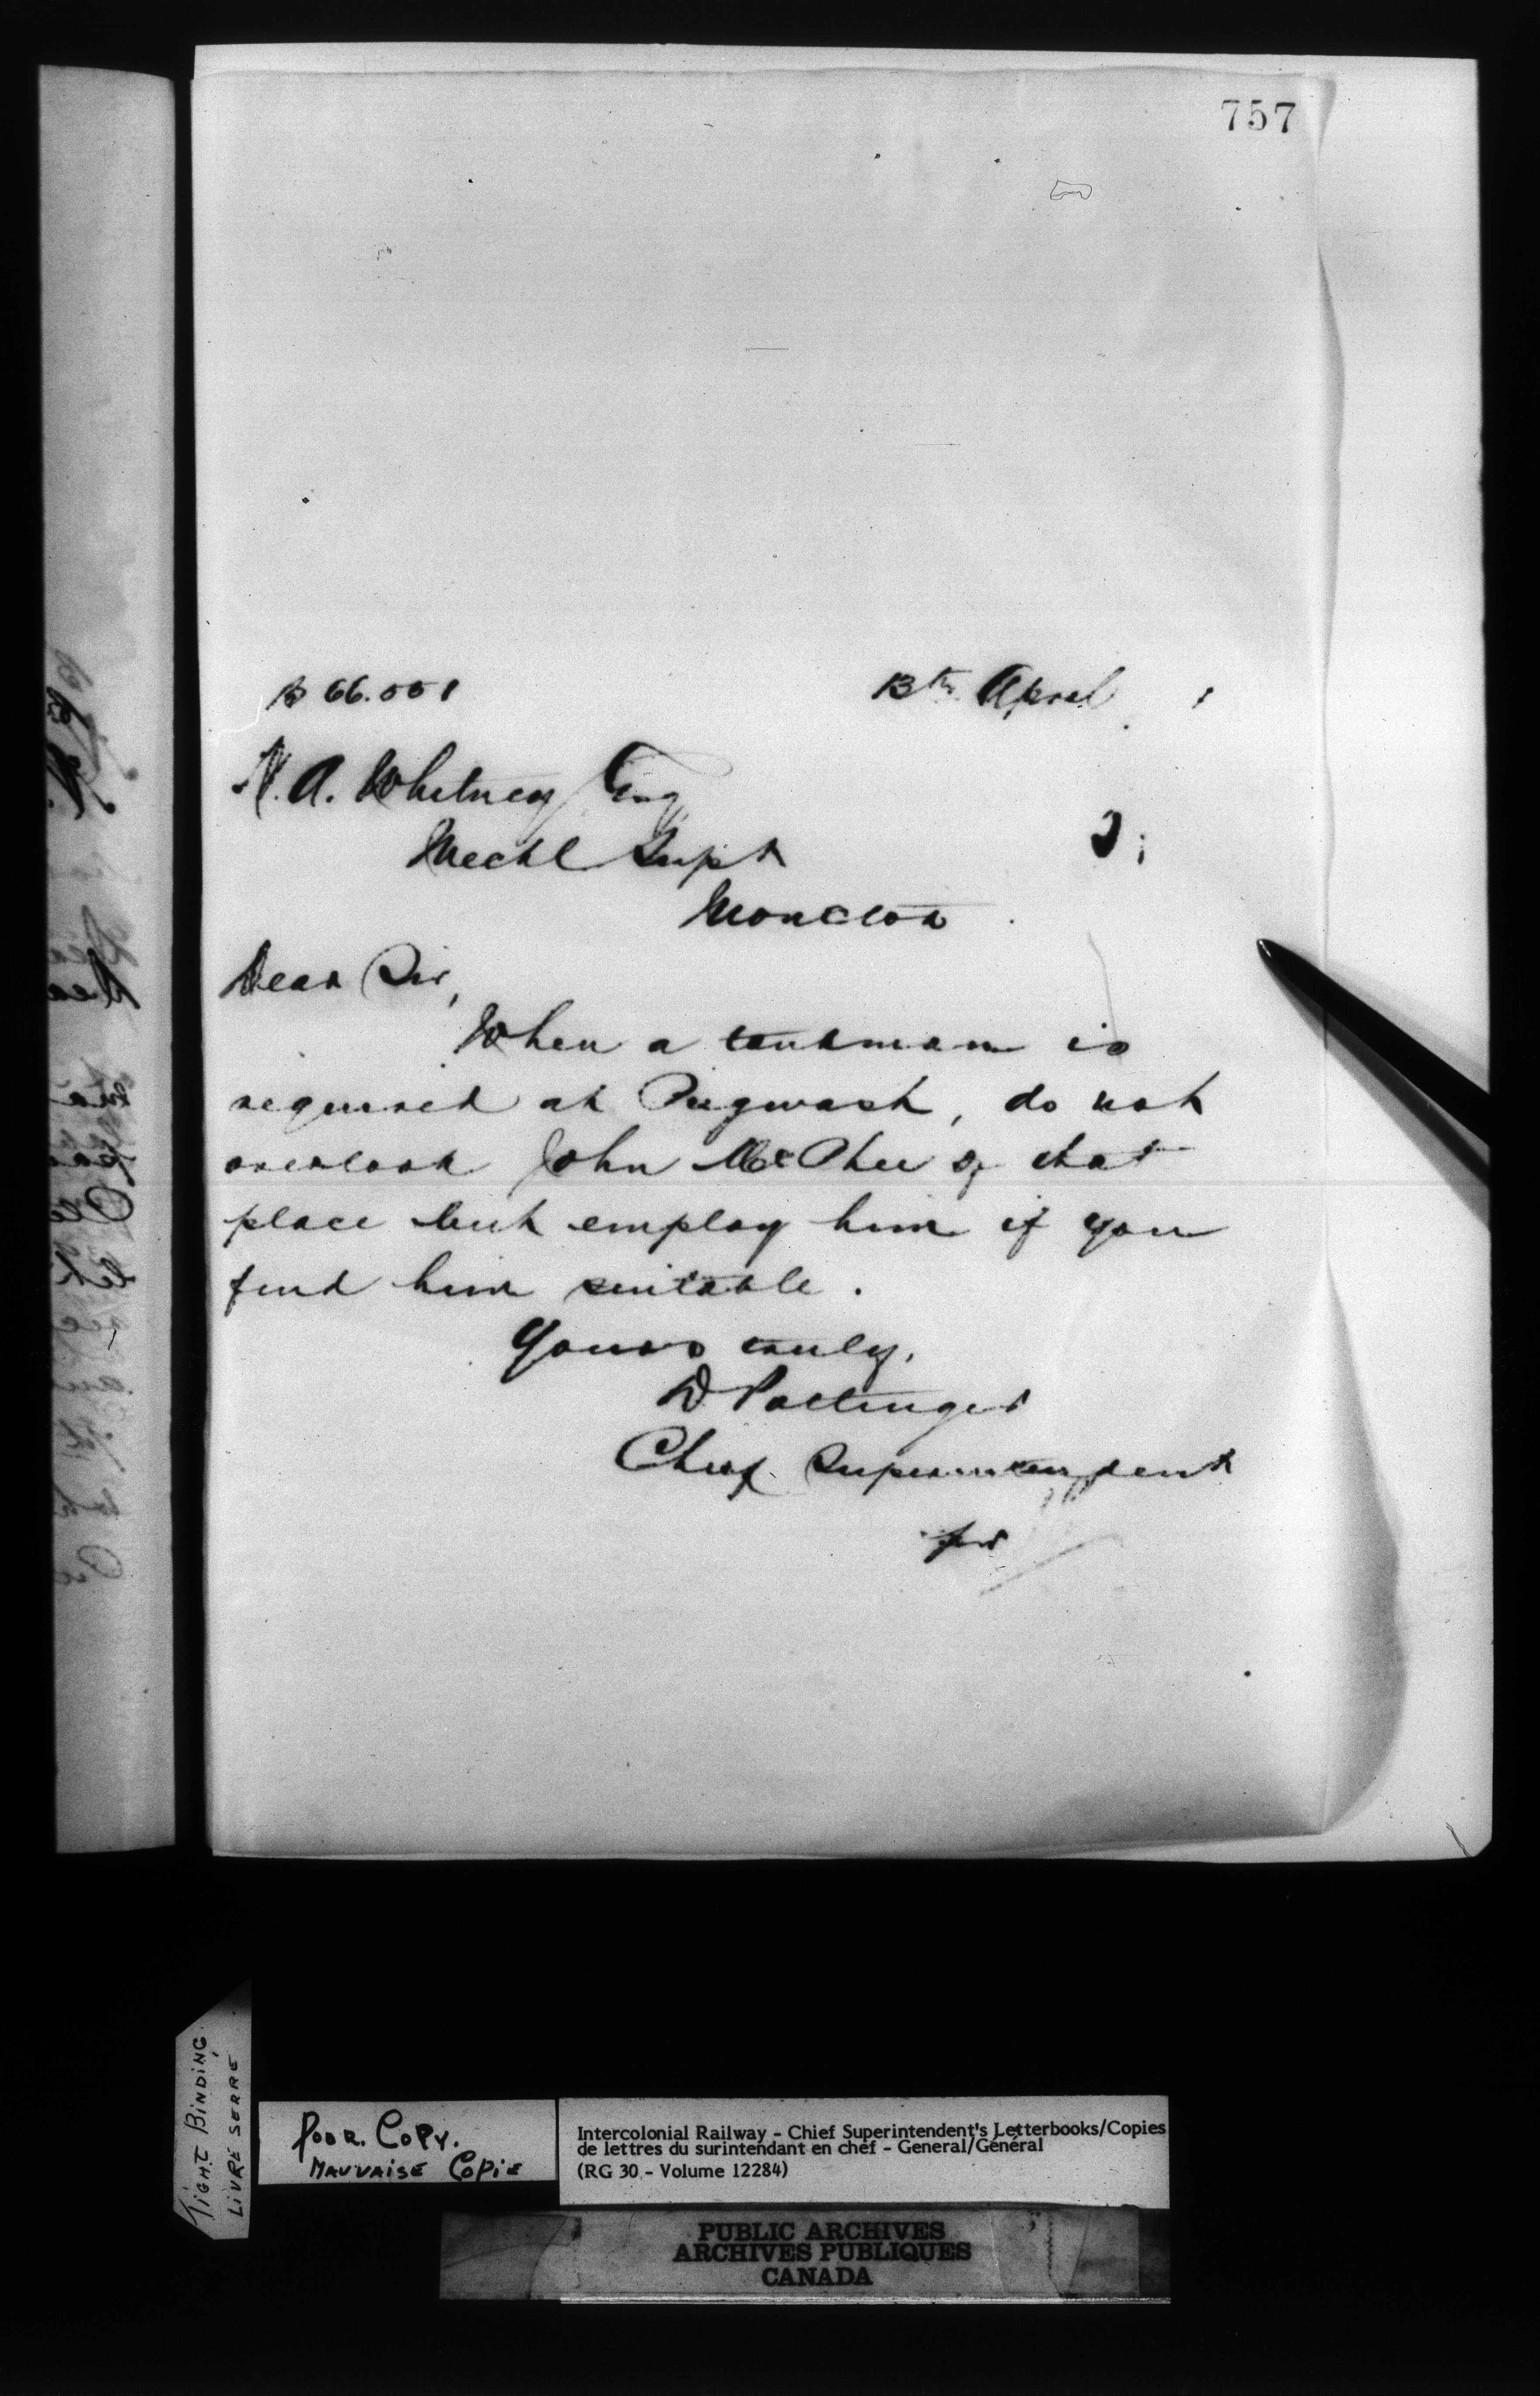 757
66.551
13th April
H. A. Whitney Esq
Mechl Supt
Moncton
Dear Sir,
When a tankman is
required at Pugwash, do not
overlook John McPhee of that
place but employ him if you
find him suitable.
Yours truly,
D Pottinger
Chief Superintendent
per
TIGHT BINDING
LIVRE SERRE
POOR. COPY.
MAUVAISE COPIE
Intercolonial Railway - Chief Superintendent's Letterbooks/Copies
de lettres du surintendant en chef - General/Général
(RG 30 - Volume 12284)
PUBLIC ARCHIVES
ARCHIVES PUBLIQUES
CANADA